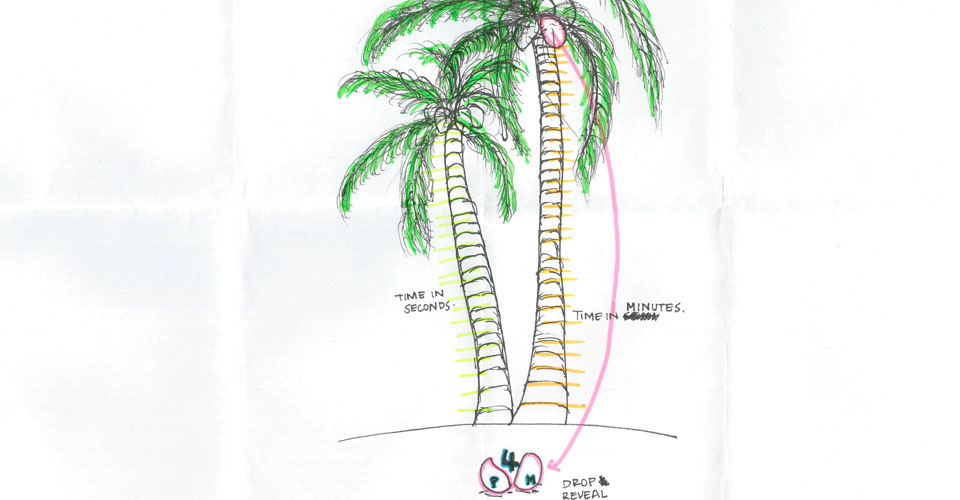 TIME IN
SECONDS.
TIME IN MINUTES.
4
P M
DROP &
REVEAL